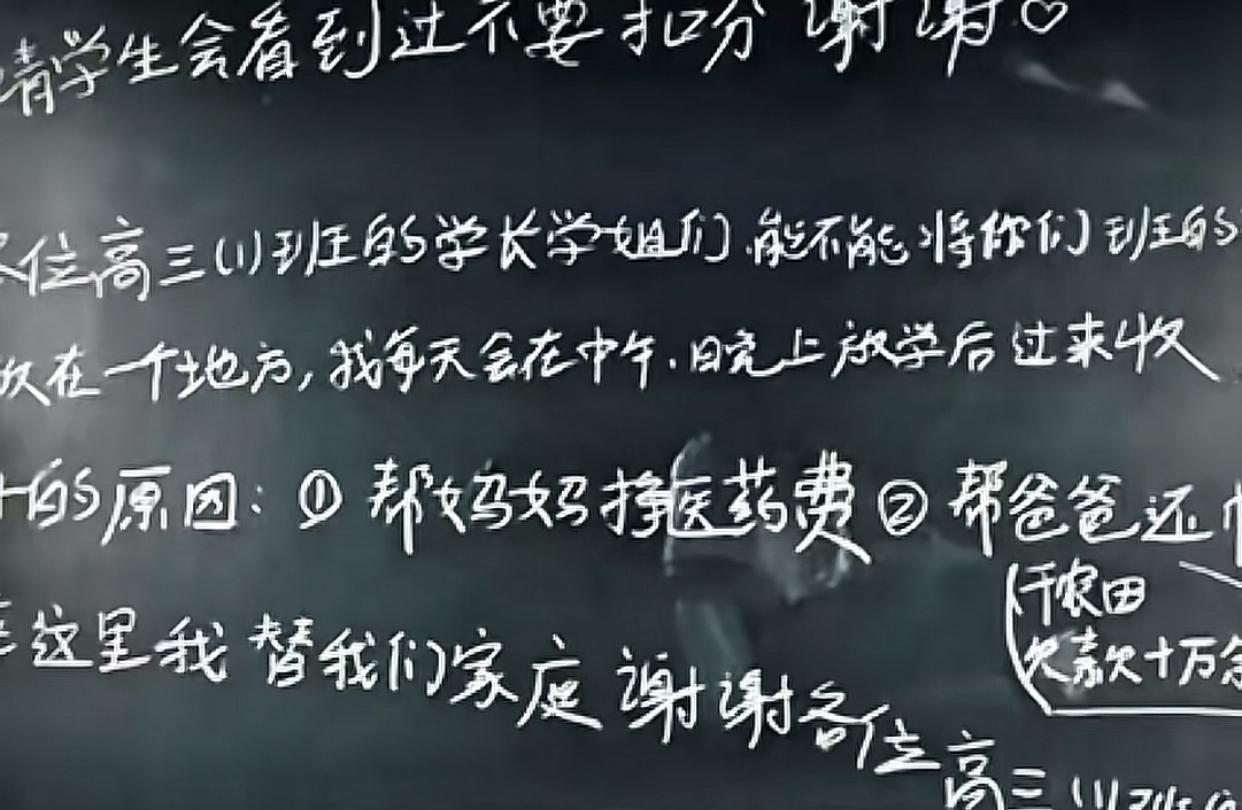 请学生会看到过不要扣分 谢谢♡
位高三(1)班的学长学姐们,能不能将你们班的
放在一个地方,我每天会在中午.晚上放学后过来收
的原因:① 帮妈妈挣医药费 ② 帮爸爸还
干农田
欠款十万余
在这里我替我们家庭谢谢各位高三(1)班的